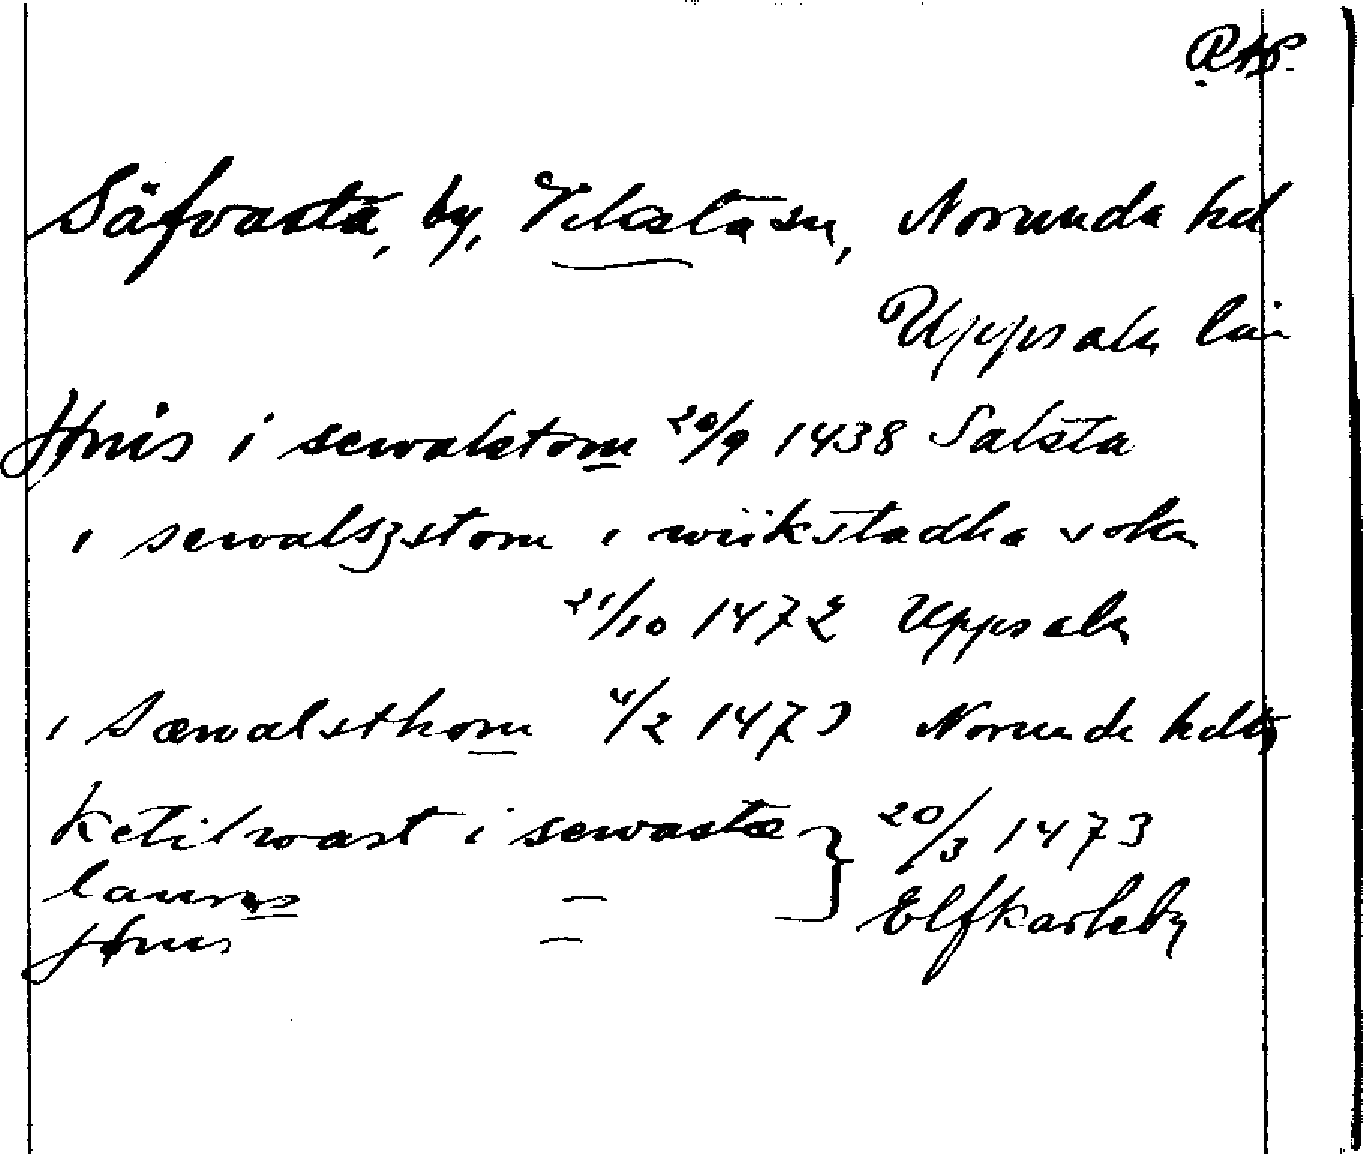 RAP.
Säfvasta, by, Viksta sn, Norunda hd
Uppsala län
Jönis i sewalstom 20/9 1438 Salsta
i sewalszstom i wiikstadha sokn
21/10 1472 Uppsala
i Sæwalsthom 4/2 1473 Norunda hdtg
Ketilwast i sewastæ } 20/3 1473
laurus — Elfkarleby
Jönis —